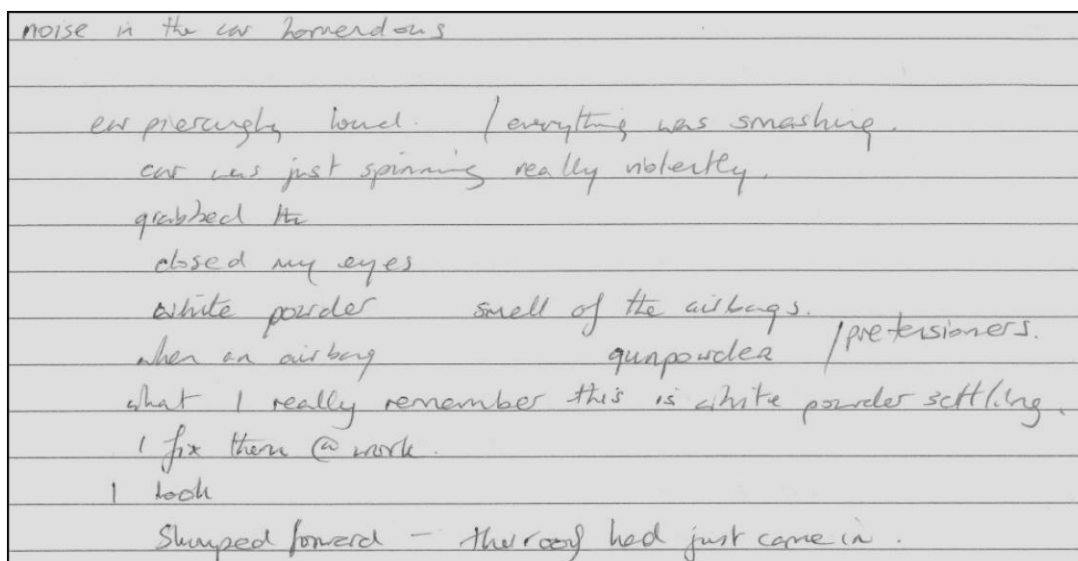 noise in the car horrendous
ear piercingly loud. / everything was smashing.
car was just spinning really violently.
grabbed the
closed my eyes
white powder smell of the airbags.
when an airbag gunpowder / pretensioners.
what I really remember this is white powder settling.
I fix them @ work.
I look
Slumped forward - the roof had just came in.